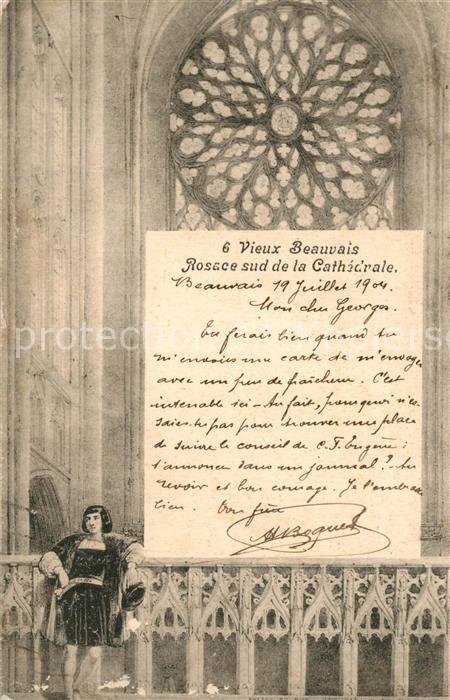 6 Vieux Beauvais
Rosace sud de la Cathédrale.
Beauvais 19 Juillet 1904.
Mon cher Georges.
Tu ferais bien quand tu
m'envoies une carte de m'envoyer
avec un peu de fraîcheur. C'est
intenable ici - Au fait, pourquoi n'es
saies-tu pas pour trouver une place
de suivre le conseil de C. F. Eugène :
t'annoncer dans un journal? - Au
revoir et bon courage. Je t'embrasse
bien. Ton frère